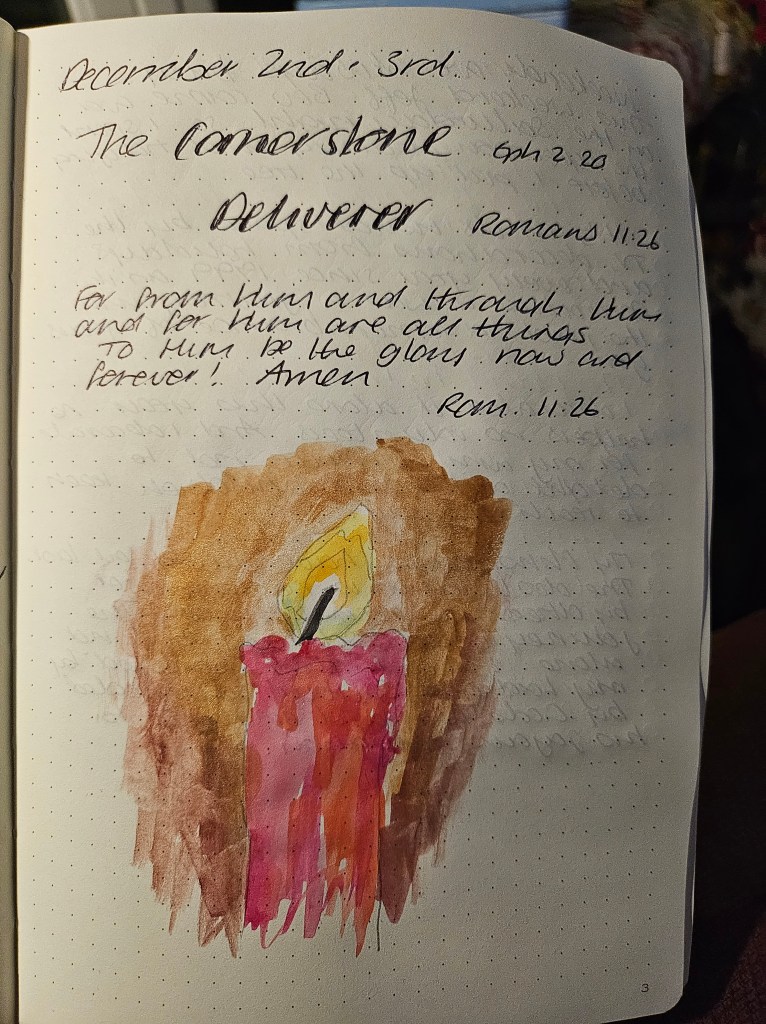 December 2nd · 3rd.
The Cornerstone Eph 2:20
Deliverer Romans 11:26
For from Him and through Him
and for Him are all things
To Him be the glory now and
forever! Amen
Rom. 11:26
3